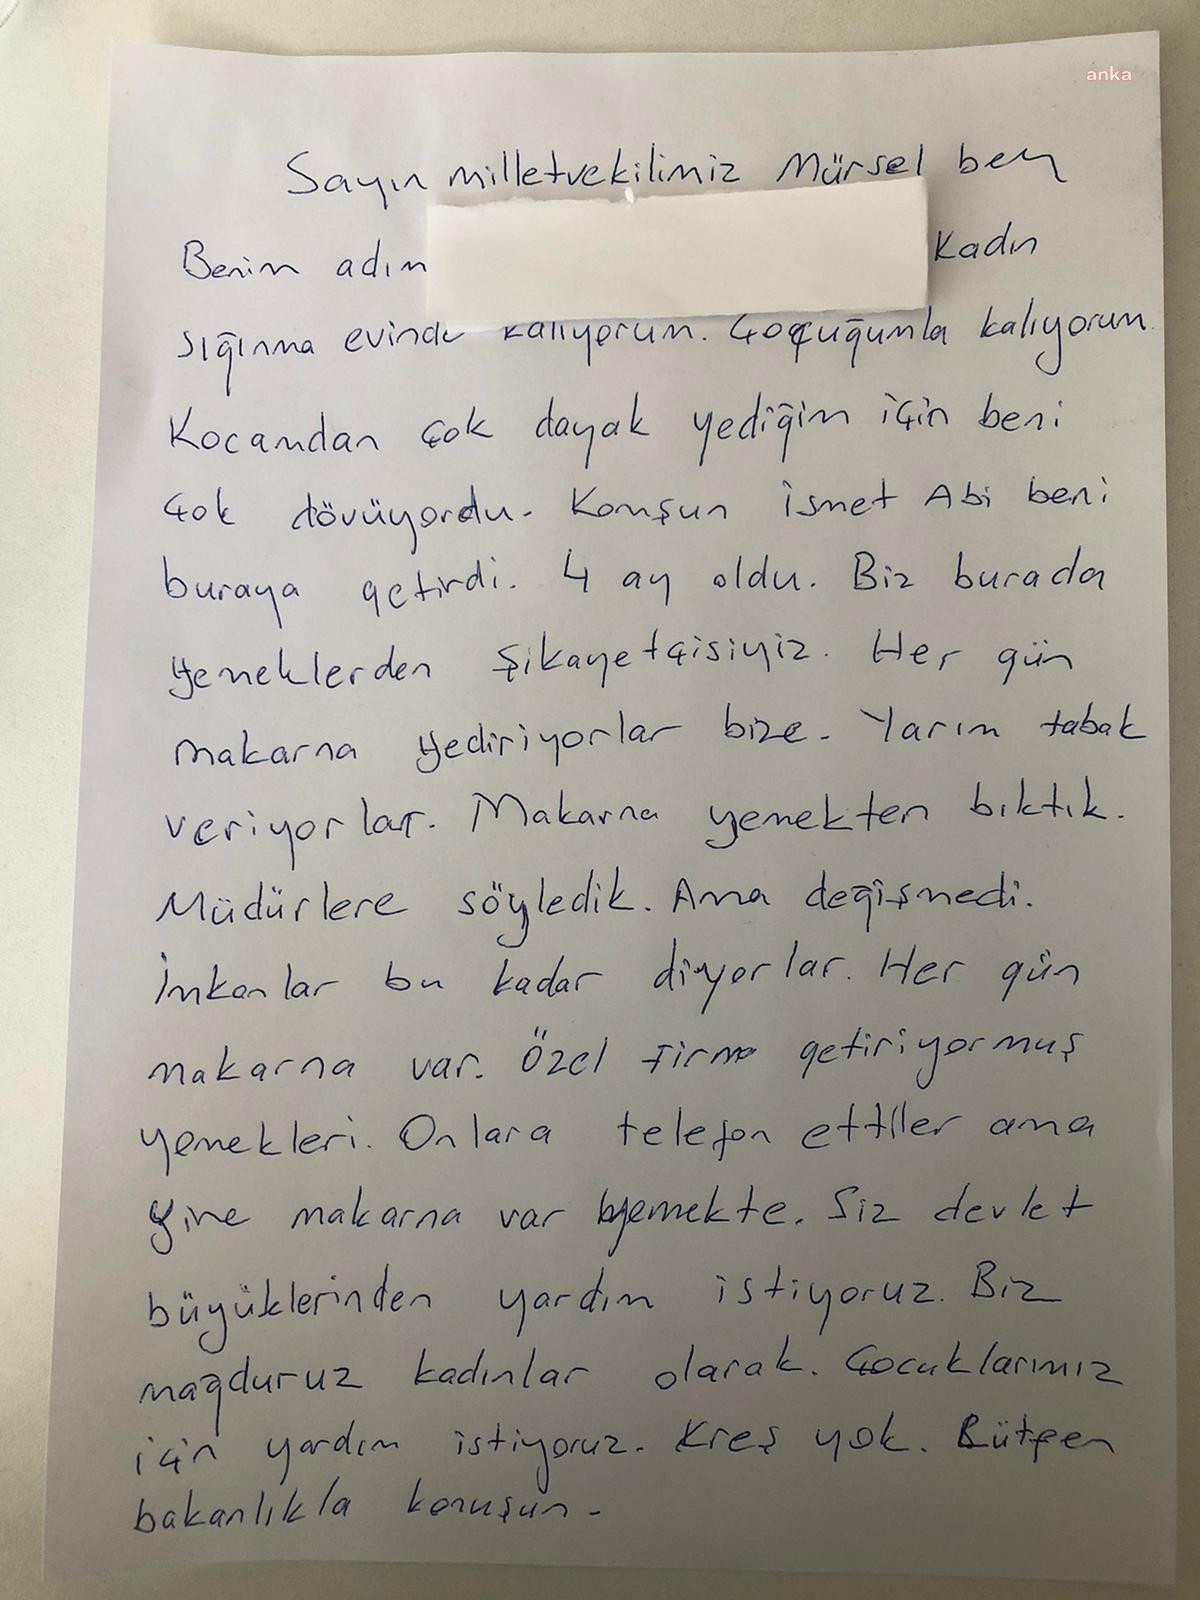 anka
Sayın milletvekilimiz Mürsel bey
Benim adım Kadın
sığınma evinde kalıyorum. Çoçuğumla kalıyorum
Kocamdan çok dayak yediğim için beni
çok dövüyordu. Komşum İsmet Abi beni
buraya getirdi. 4 ay oldu. Biz burada
yemeklerden şikayetçisiyiz. Her gün
makarna yediriyorlar bize. Yarım tabak
veriyorlar. Makarna yemekten bıktık.
Müdürlere söyledik. Ama değişmedi.
İmkanlar bu kadar diyorlar. Her gün
makarna var. Özel firma getiriyormuş
yemekleri. Onlara telefon ettiler ama
yine makarna var yemekte. Siz devlet
büyüklerinden yardım istiyoruz. Biz
mağduruz kadınlar olarak. Çocuklarımız
için yardım istiyoruz. Kreş yok. Lütfen
bakanlıkla konuşun.